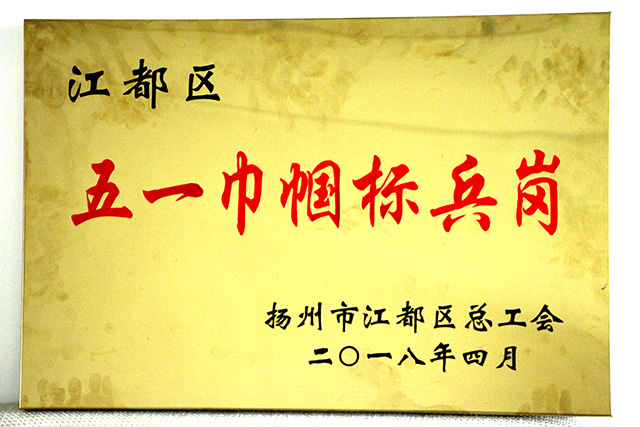 江都区
五一巾帼标兵岗
扬州市江都区总工会
二〇一八年四月